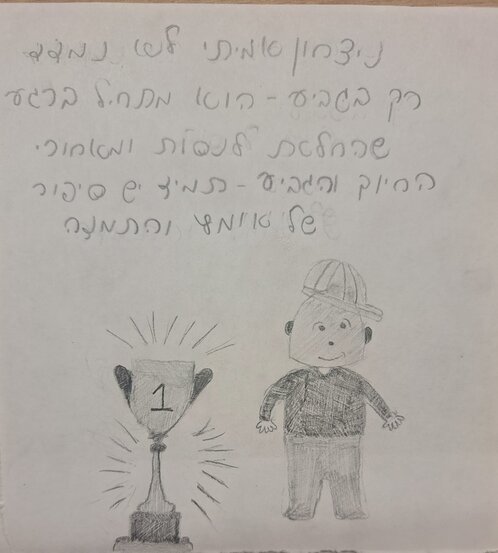 ניצחון אמיתי לא נמדד
רק בגביע - הוא מתחיל ברגע
שהחלטת לנסות ומאחורי
החיוך והגביע - תמיד יש סיפור
של אומץ והתמדה
1